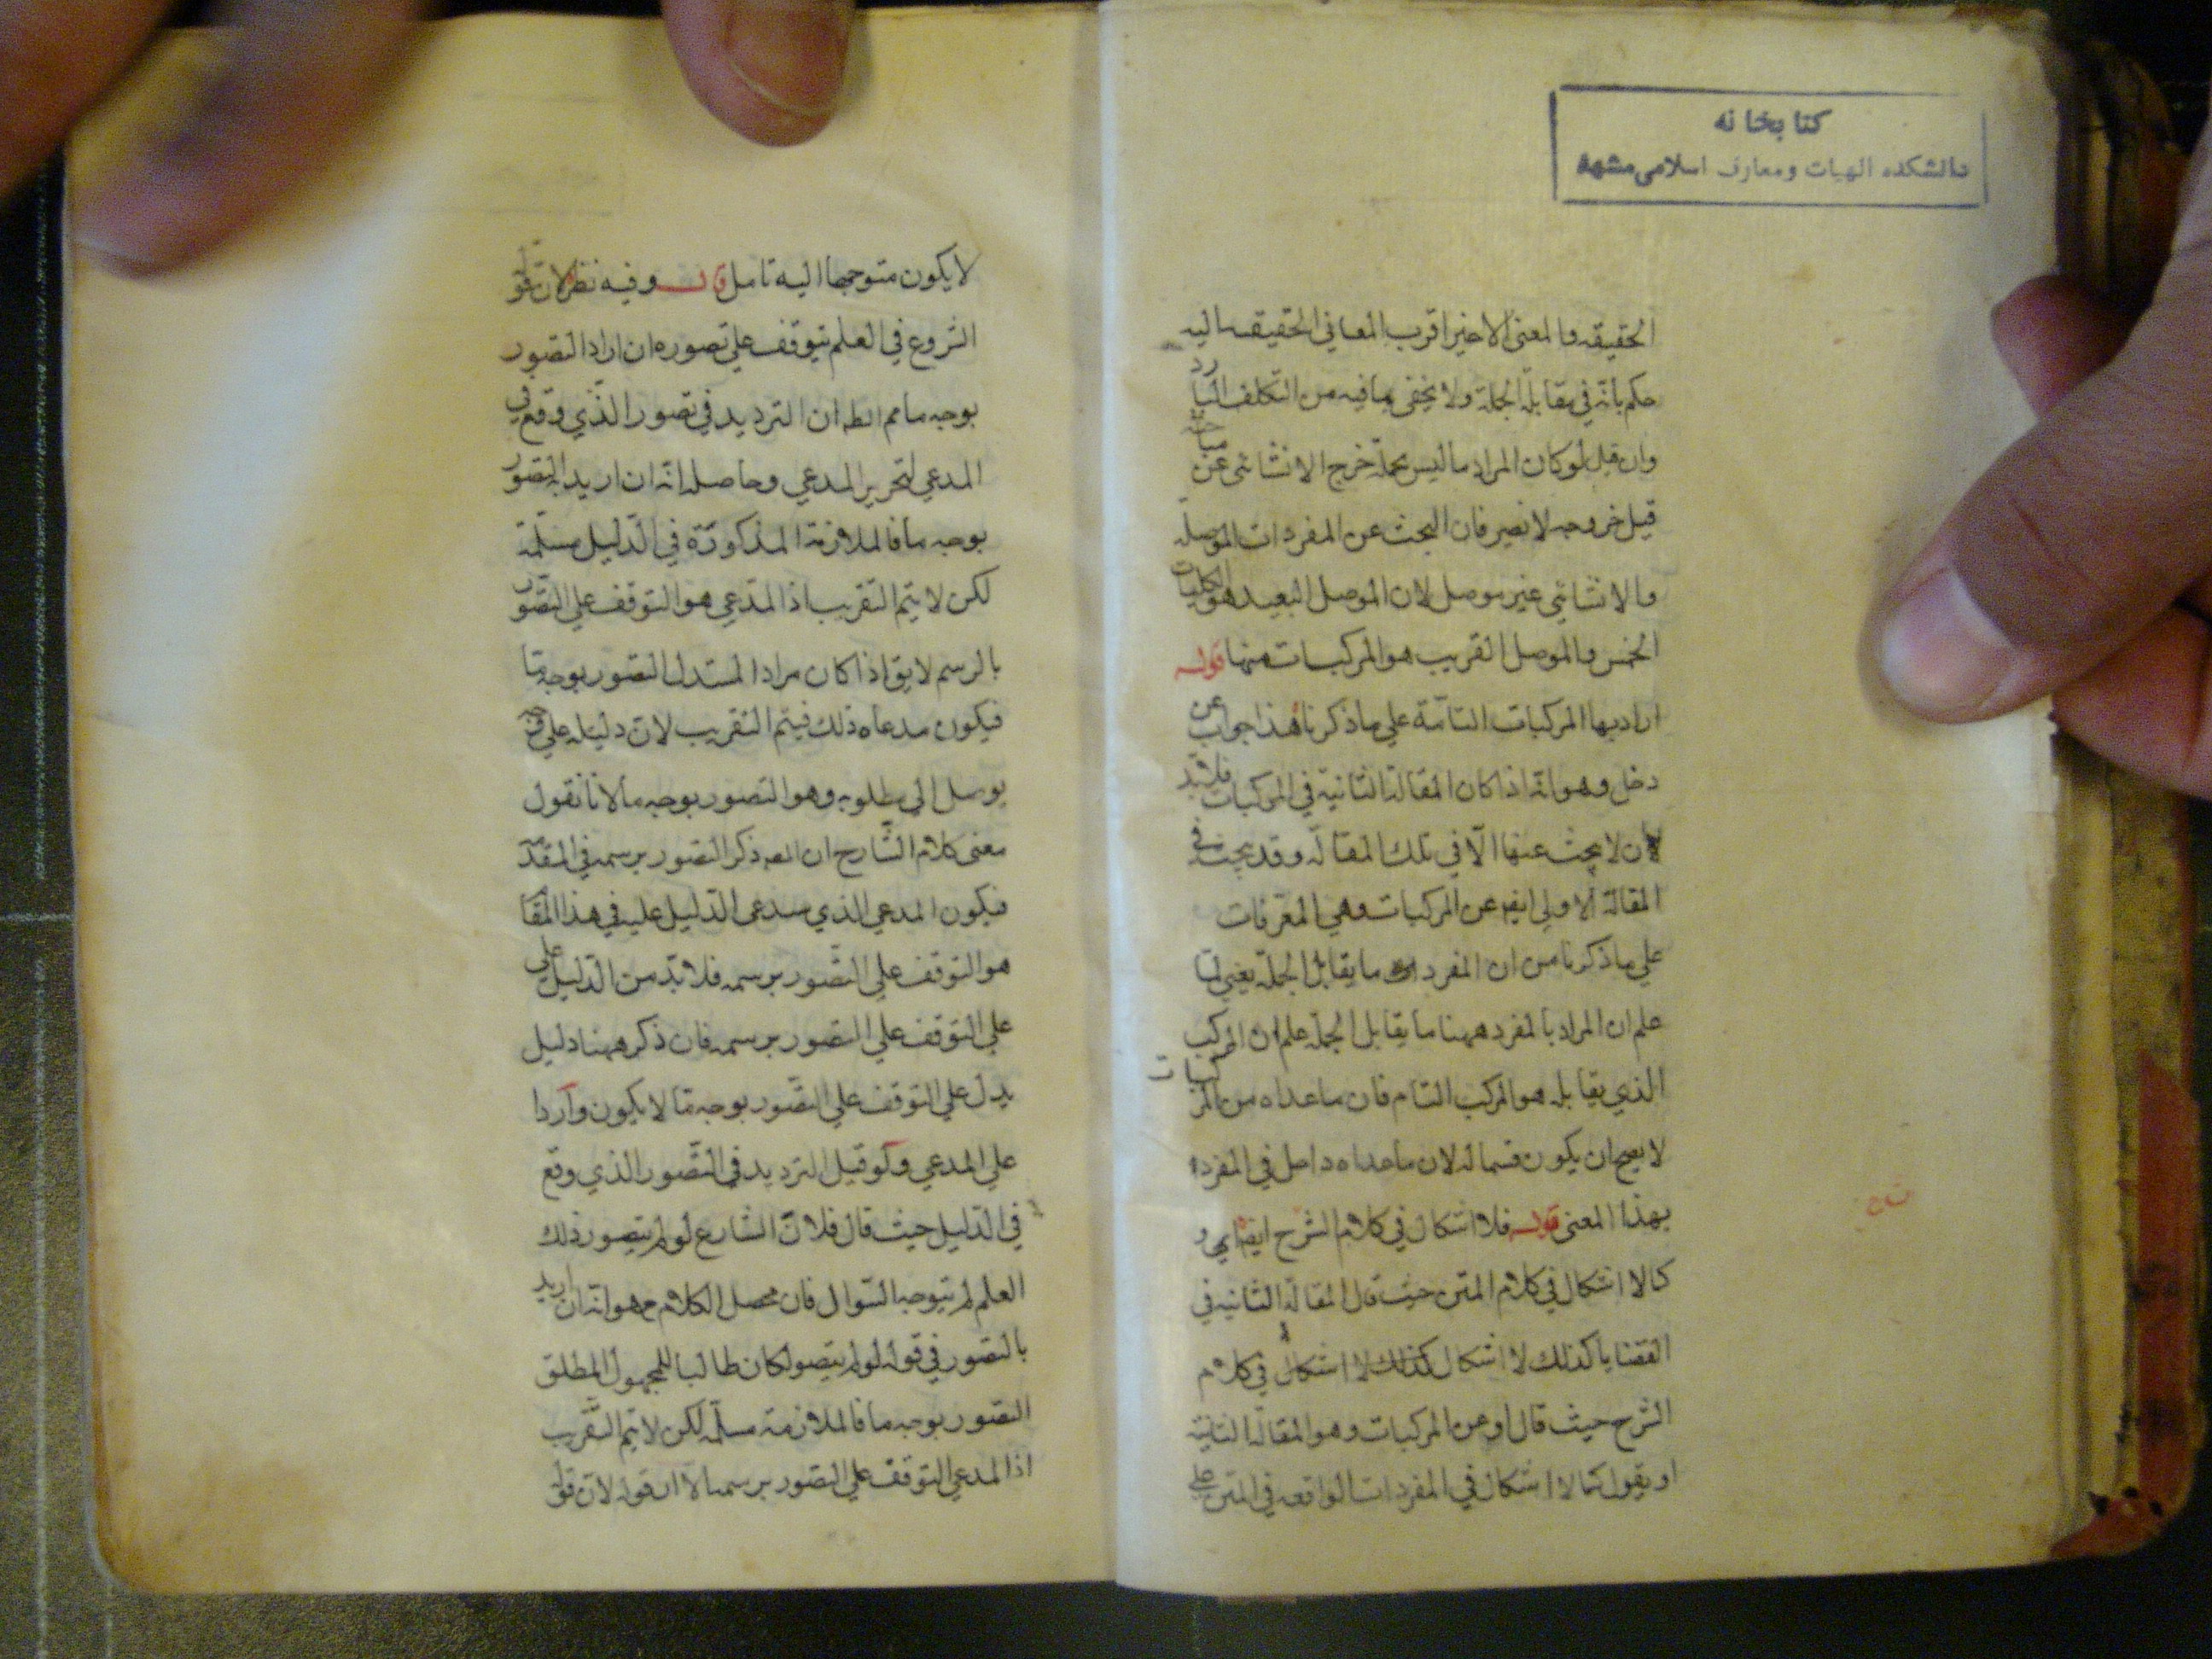 كتابخانه
دانشكده الهيات ومعارف اسلامى مشهد
الحقيقه والمعنى الاخير اقرب المعاني الحقيقه اليه
حكم بانّه في مقابلة الجملة ولا يخفى ما فيه من التكلف البارد
وان قيل لو كان المراد ما ليس بجملة خرج الانشائى عن مباحثه
قيل خروجه لا نصير فان البحث عن المفردات الموصلة
والانشائي غير موصل لان الموصل البعيد هو الكليات
الخمس والموصل القريب هو المركبات منها قوله
اراد بها المركبات التامّة علي ما ذكرنا هذا جواب عن
دخل وهو انّه اذا كان المقالة الثانية في المركبات فلا بد
لان لا يبحث عنها الّا في تلك المقالة وقد يبحث في
المقالة الاولي ايضا عن المركبات وهي المعرّفات
علي ما ذكرنا من ان المفرد ما يقابل الجملة يعني لمّا
علم ان المراد بالمفرد ههنا ما يقابل الجملة علم ان المركب
الذي يقابله هو المركب التام فان ما عداه من المركبات
لا يصح ان يكون قسما له لان ما عداه داخل في المفرد
بهذا المعنى قوله فلا اشكال في كلام الشرح ايضا اي و
كما لا اشكال في كلام المتن حيث قال المقالة الثانية في
القضايا كذلك لا اشكال كذلك لا اشكال في كلام
الشرح حيث قال او عن المركبات وهو المقالة الثانية
او يقول كما لا اشكال في المفردات الواقعة في المتن علي
لا يكون متوجها اليه تامل قال وفيه نظر لان قوله
الشروع في العلم يتوقف علي تصوره ان اراد التصور
بوجه ما مم الظ ان الترديد في تصور الذّي وقع في
المدعي لتحرير المدعي وحاصله انّه ان اريد به التصور
بوجه ما فالملازمة المذكورة في الدّليل مسلّمة
لكن لا يتم التقريب اذ المدّعي هو التوقف علي التصّور
بالرسم لا يق اذا كان مراد المستدل التصور بوجه ما
فيكون مدعاه ذلك فيتم التقريب لان دليله علي
يوصل الي مطلوبه وهو التصور بوجه ما لانا نقول
معنى كلام الشّارح ان المصه ذكر التصور برسمه في المقدّمة
فيكون المدعي الذي يستدعى الدّليل عليه في هذا المقام
هو التوقف علي التصّور برسمه فلا بدّ من الدّليل علي
علي التوقف علي التصور برسمه فان ذكر ههنا دليل
يدل علي التوقف علي التصّور بوجه ما لا يكون واردا
علي المدعي ولو قيل الترديد في التصّور الذي وقع
في الدّليل حيث قال فلانّ الشارع لو لم يتصور ذلك
العلم لم يتوجه السّوال فان محصل الكلام ح هو انّه ان اريد
بالتصور في قوله لو لم يتصور لكان طالبا للمجهول المطلق
التصور بوجه ما فالملازمة مسلّمة لكن لا يتم التقريب
اذ المدعي التوقف علي التصور برسمه الّا ان قوله لان قوله